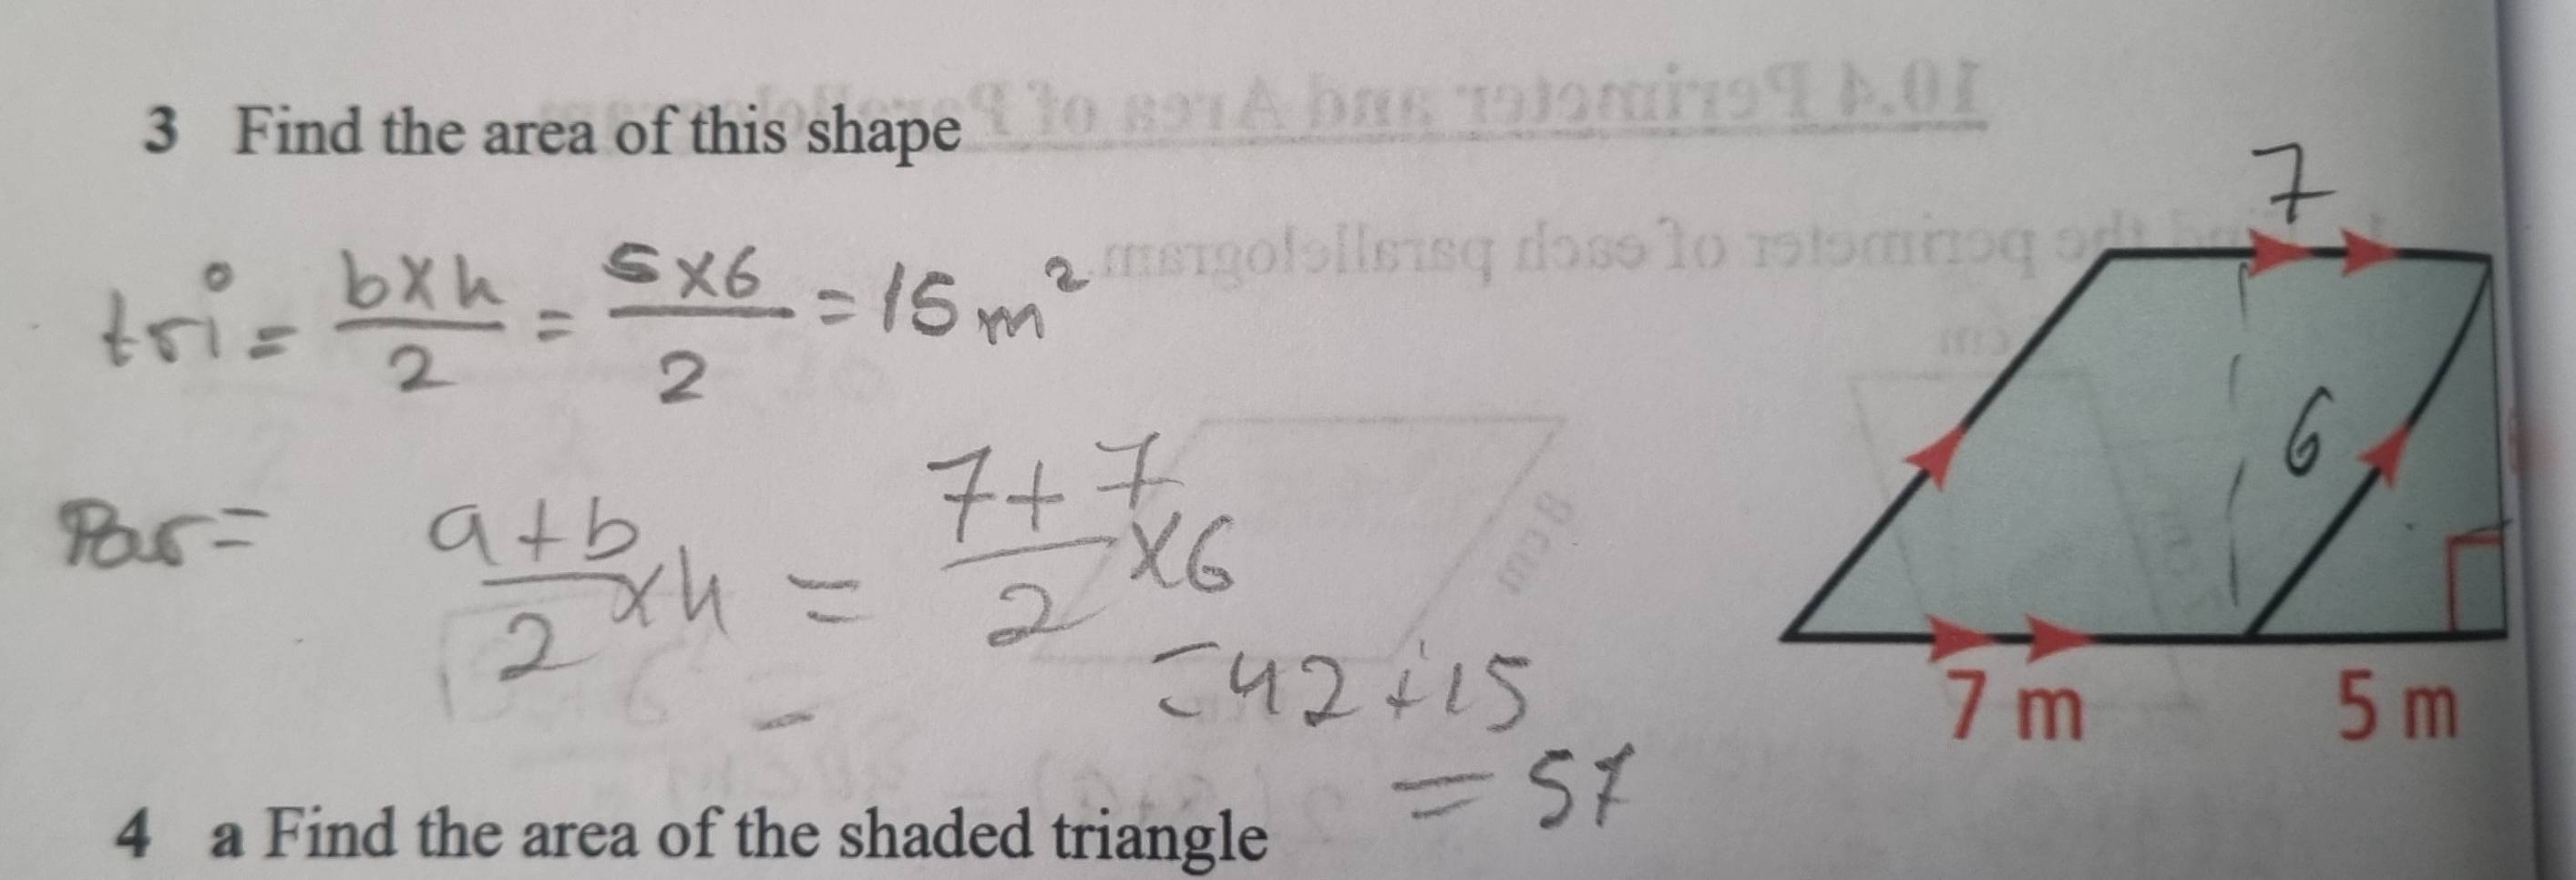 3 Find the area of this shape
7
tri = b×h/2 = 5×6/2 = 15 m²
Par = a+b/2 ×h = 7+7/2 ×6
6
= 42 + 15
7 m 5 m
= 57
4 a Find the area of the shaded triangle